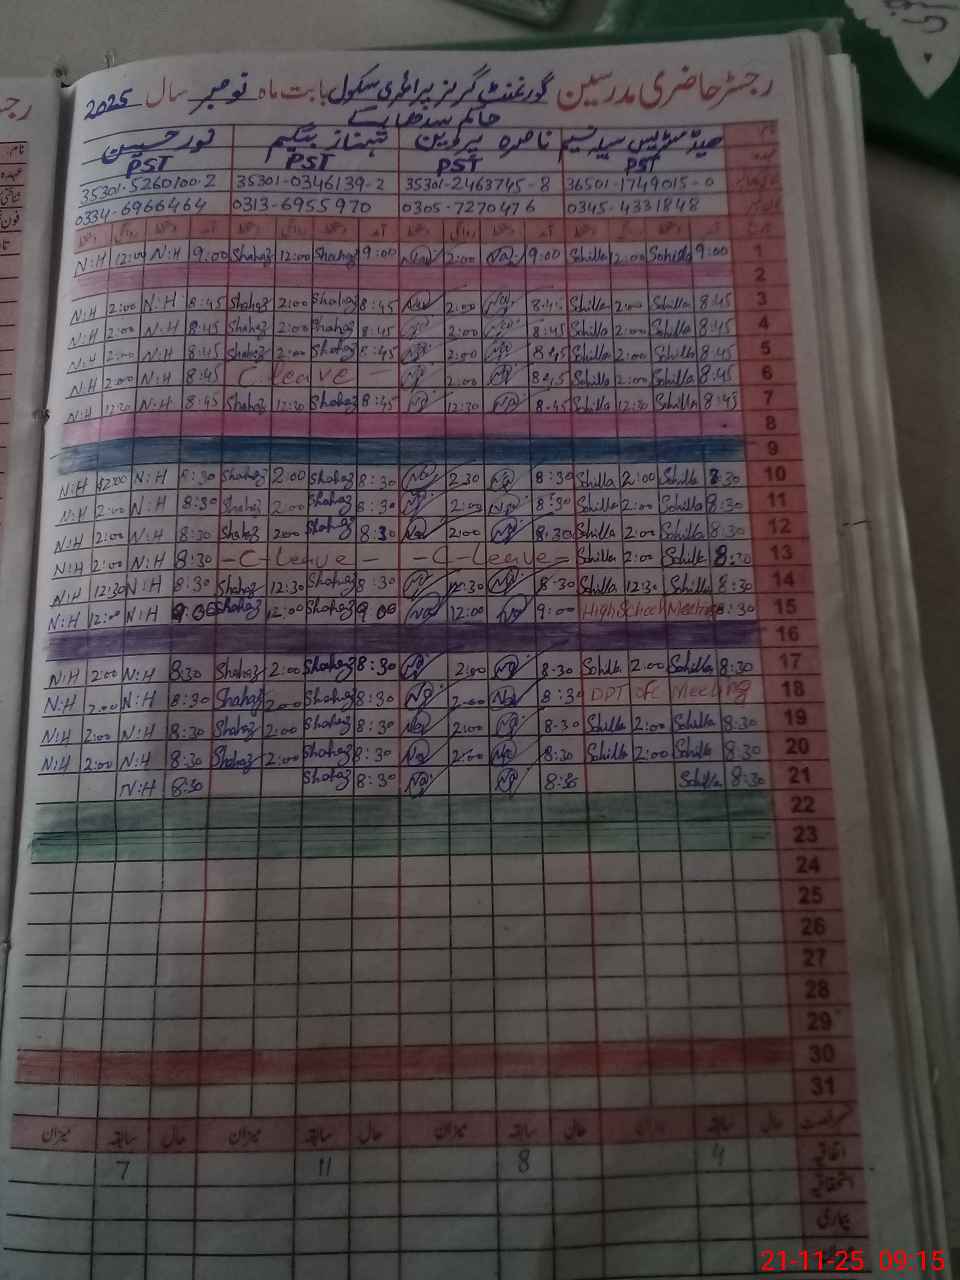 رجسٹر حاضری مدرسین گورنمنٹ گرلز پرائمری سکول بابت ماہ نومبر سال 2025
ہیڈ مسٹریس نسیم ناصرہ پروین شہناز بیگم نور حسین
PST PST PST PST
35301-5260100-2 35301-0346139-2 35301-2463745-8 36501-1749015-0
0334-6966464 0313-6955970 0305-7270476 0345-4331848
N:H 12:00 N:H 9:00 Shahaz 12:00 Shahaz 9:00 2:00 9:00 Sohilla 2:00 Sohilla 9:00 1
2
N:H 2:00 N:H 8:45 Shahaz 2:00 Shahaz 8:45 2:00 8:45 Sohilla 2:00 Sohilla 8:45 3
N:H 2:00 N:H 8:45 Shahaz 2:00 Shahaz 8:45 2:00 8:45 Sohilla 2:00 Sohilla 8:45 4
N:H 2:00 N:H 8:45 Shahaz 2:00 Shahaz 8:45 2:00 8:45 Sohilla 2:00 Sohilla 8:45 5
N:H 2:00 N:H 8:45 C leave - 2:00 8:45 Sohilla 2:00 Sohilla 8:45 6
N:H 12:30 N:H 8:45 Shahaz 12:30 Shahaz 8:45 12:30 8:45 Sohilla 12:30 Sohilla 8:45 7
8
9
N:H 2:00 N:H 8:30 Shahaz 2:00 Shahaz 8:30 2:30 8:30 Sohilla 2:00 Sohilla 8:30 10
N:H 2:00 N:H 8:30 Shahaz 2:00 Shahaz 8:30 2:00 8:30 Sohilla 2:00 Sohilla 8:30 11
N:H 2:00 N:H 8:30 Shahaz 2:00 Shahaz 8:30 2:00 8:30 Sohilla 2:00 Sohilla 8:30 12
N:H 2:00 N:H 8:30 -C-leave - -C-leave- Sohilla 2:00 Sohilla 8:30 13
N:H 12:30 N:H 8:30 Shahaz 12:30 Shahaz 8:30 12:30 8:30 Sohilla 12:30 Sohilla 8:30 14
N:H 12:00 N:H 9:00 Shahaz 12:00 Shahaz 9:00 12:00 9:00 High School Meeting 8:30 15
16
N:H 2:00 N:H 8:30 Shahaz 2:00 Shahaz 8:30 2:00 8:30 Sohilla 2:00 Sohilla 8:30 17
N:H 2:00 N:H 8:30 Shahaz 2:00 Shahaz 8:30 2:00 8:30 Meeting 18
N:H 2:00 N:H 8:30 Shahaz 2:00 Shahaz 8:30 2:00 8:30 Sohilla 2:00 Sohilla 8:30 19
N:H 2:00 N:H 8:30 Shahaz 2:00 Shahaz 8:30 2:00 8:30 Sohilla 2:00 Sohilla 8:30 20
N:H 8:30 Shahaz 8:30 8:30 Sohilla 8:30 21
22
23
24
25
26
27
28
29
30
31
حال سابقہ میزان حال سابقہ میزان حال سابقہ میزان
اتفاقیہ 4 8 11 7
استحقاقیہ
بیماری
21-11-25 09:15